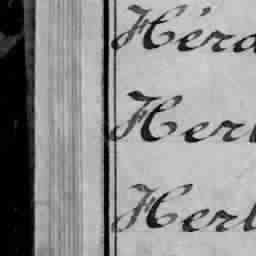 Hérd
Herl
Herl